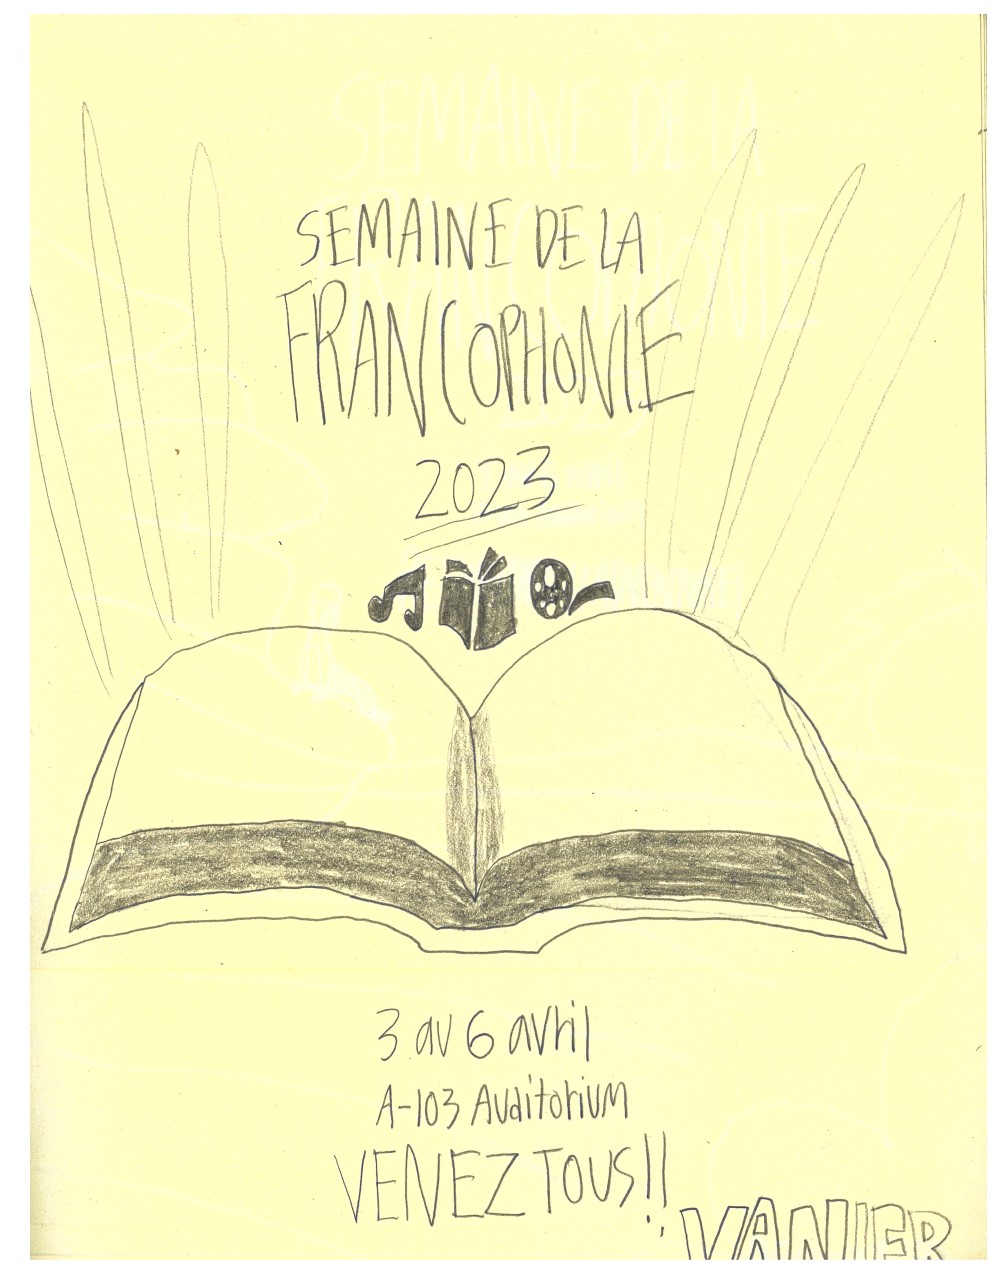 SEMAINE DE LA
FRANCOPHONIE
2023
3 au 6 avril
A-103 Auditorium
VENEZ TOUS!!
VANIER